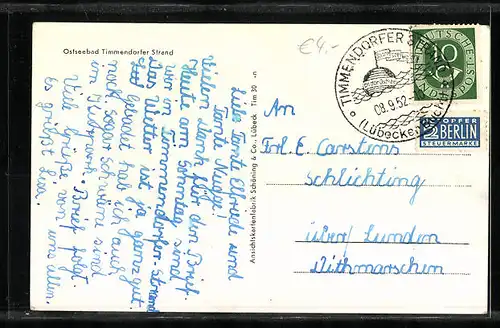 Ostseebad Timmendorfer Strand
€4.-
Liebe Tante Elfriede und
Tante
Vielen Dank für den Brief.
Heute am Sonntag sind
wir in Timmendorfer-Strand
Das Wetter ist ja ganz gut.
gebadet hab ich auch
noch, sogar Schwäne sind
im Brief folgt.
Viel Grüße von uns allen.
Es grüßt
Ansichtskartenfabrik Schöning & Co., Lübeck Tim 30 -n
TIMMENDORFER STRAND
08.9.52.
(Lübecker Bucht)
DEUTSCHE BUNDESPOST
10
NOTOPFER
2 BERLIN
STEUERMARKE
An
Frl. E. Carstens
Schlichting
über/ Lunden
Dithmarschen